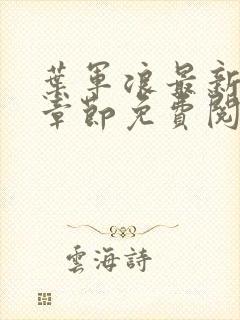 葉軍浪最新
章節免費閱
雲海詩